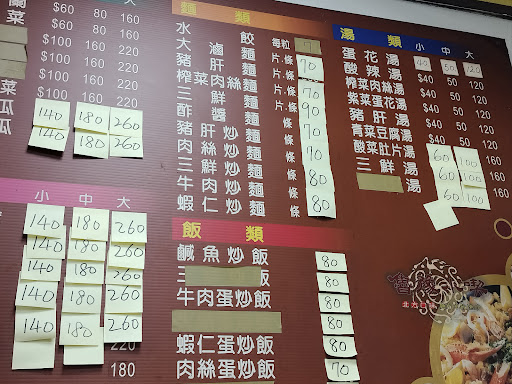 大
蘭 $60 80 160
菜 $60 80 160
$100 160 220
$100 160 220
菜 $100 160 220
瓜 $100 160 220
瓜 140 180 260
140 180 260
小 中 大
140 180 260
140 180 260
140 180 260
140 180 260
140 180 260
220
180
麵 類
水 餃 每粒
大滷麵 片.條 70
豬肝麵 片.條
榨菜肉絲麵 片.條 70
三鮮麵 片.條 90
酢醬麵 條 70
豬肝炒麵 條
肉絲炒麵 條 70
三鮮炒麵 條 80
牛肉炒麵 條
蝦仁炒麵 條 80
飯 類
鹹魚炒飯 80
三 80
牛肉蛋炒飯 80
80
蝦仁蛋炒飯 80
肉絲蛋炒飯 70
湯 類 小 中 大
蛋花湯 40 50 120
酸辣湯 $40 50 120
榨菜肉絲湯 $40 50 120
紫菜蛋花湯 $40 50 120
豬肝湯 $40 50 120
青菜豆腐湯 $40 50 120
酸菜肚片湯 60 100 160
三鮮湯 60 100 160
湯 60 100 160